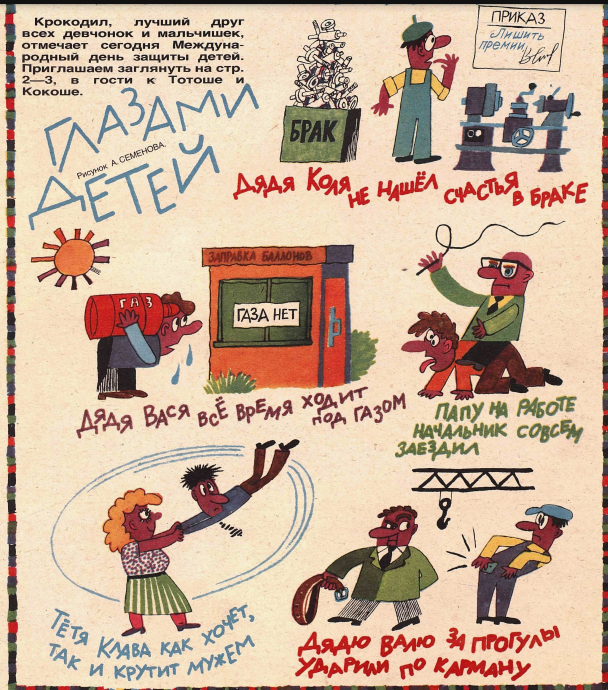 Крокодил, лучший друг
всех девчонок и мальчишек,
отмечает сегодня Междуна-
родный день защиты детей.
Приглашаем заглянуть на стр.
2—3, в гости к Тотоше и
Кокоше.
ГЛАЗАМИ
ДЕТЕЙ
Рисунок А. СЕМЕНОВА.
БРАК
ПРИКАЗ
Лишить
премии
ДЯДЯ КОЛЯ НЕ НАШЁЛ СЧАСТЬЯ В БРАКЕ
ГАЗ
ЗАПРАВКА БАЛЛОНОВ
ГАЗА НЕТ
ДЯДЯ ВАСЯ ВСЁ ВРЕМЯ ХОДИТ
ПОД ГАЗОМ
ПАПУ НА РАБОТЕ
НАЧАЛЬНИК СОВСЕМ
ЗАЕЗДИЛ
ТЁТЯ КЛАВА КАК ХОЧЕТ,
ТАК И КРУТИТ МУЖЕМ
ДЯДЮ ВАЛЮ ЗА ПРОГУЛЫ
УДАРИЛИ ПО КАРМАНУ